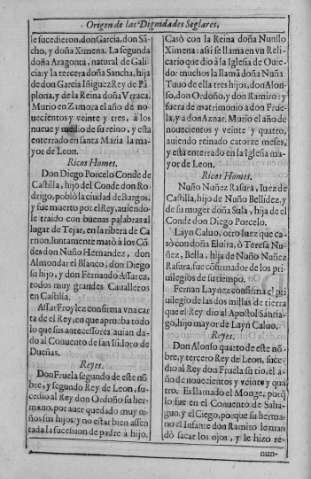 Origen de las Dignidades Seglares,
le sucedieron, don Garcia, don Sā
cho, y doña Ximena. La segunda
doña Aragonta, natural de Gali-
cia: y la tercera doña Sancha, hija
de don Garcia Iñiguez Rey de Pā
plona, y de la Reina doña Vrraca.
Murio en Zamora el año de no-
uecientos y veinte y tres, a los
nueue y medio de su reino, y està
enterrado en santa Maria la ma-
yor de Leon.
Ricos Homes.
Don Diego Porcelo Conde de
Castilla, hijo del Conde don Ro-
drigo, poblò la ciudad de Burgos,
y fue muerto por el Rey, auiendo-
le traido con buenas palabras al
lugar de Tejar, en la ribera de Ca-
rrion. Iuntamente matò a los Cō-
des don Nuño Hernandez, don
Almondar el Blanco, don Diego
su hijo, y don Fernando Assurez,
todos muy grandes Caualleros
en Castilla.
Assur Froylez confirma vna car
ta de el Rey, en que aprueba todo
lo que sus antecessores auian da-
do al Conuento de san Isidoro de
Dueñas.
Reyes.
Don Fruela segundo de este nō
bre, y segundo Rey de Leon, su-
cedio al Rey don Ordoño su her-
mano, por auer quedado muy ni-
ños sus hijos, y no estar bien assen
tada la sucession de padre à hijo.
Casò con la Reina doña Nunilo
Ximena: assi se llama en vn Reli-
cario que dio à la Iglesia de Ouie-
do: muchos la llamā doña Nuña.
Tuuo de ella tres hijos, don Alon-
so, don Ordoño, y don Ramiro: y
fuera de matrimonio a don Frue-
la, y a don Aznar. Murio el año de
nouecientos y veinte y quatro,
auiendo reinado catorze meses,
y està enterrado en la Iglesia ma-
yor de Leon.
Ricos Homes.
Nuño Nuñez Rasura, Iuez de
Castilla, hijo de Nuño Bellidez, y
de su muger doña Sula, hija de el
Conde don Diego Porcelo.
Layn Caluo, otro Iuez que ca-
sò con doña Eluira, ò Teresa Nu-
ñez, Bella, hija de Nuño Nuñez
Rasura, fue cōfirmador de los pri-
uilegios de su tiempo.
Fernan Laynez confirma el pri
uilegio de las dos millas de tierra
que el Rey dio al Apostol Santia-
go, hijo mayor de Layn Caluo.
Reyes.
Don Alonso quarto de este nō-
bre, y tercero Rey de Leon, suce-
dio al Rey don Fruela su tio, el a-
ño de nouecientos y veinte y qua
tro. Es llamado el Monge, porq̄
lo fue en el Conuento de Saha-
gun, y el Ciego, porque su herma-
no el Infante don Ramiro le man-
dò sacar los ojos, y le hizo re-
nun-